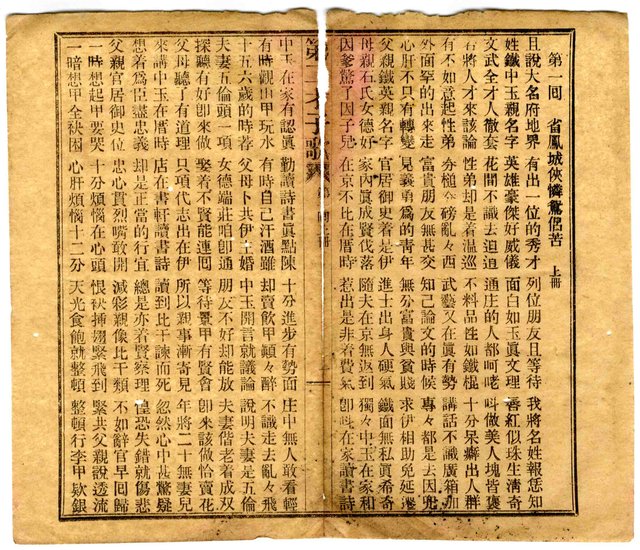 第一回　省鳳城俠憐鴦侶苦　上冊
且說大名府地界　有出一位的秀才　列位朋友且等待　我將名姓報恁知
姓鐵中玉親名字　英雄豪傑好威儀　面白如玉眞文理　唇紅似珠生淸奇
文武全才人徹套　花間不識去迫迌　通庄的人都呵咾　呌做美人塊皆褒
若將人才來該論　性弟却是着溫巡　不料品性如鐵棍　十分呆癖出人群
有不如意起性弟　夯槌々磅亂々西　武藝又在眞有勢　講話不識廣箱加
外面罕的出來走　富貴朋友無甚交　知己論文的時候　專々都是去因兜
心肝不只有轉變　見義勇爲的靑年　無分富貴與貧賤　求伊相助免延遷
父親鐵英親名字　官居御史着是伊　進士出身人硬氣　鐵面無私眞希奇
母親石氏女德好　家內眞成賢伐落　隨夫在京無返到　獨々中玉在家和
因爹驚了因子兒　在京不比在厝時　惹出是非着費氣　卽呌在家讀書詩
第二才子歌
中玉在家有認眞　勤讀詩書眞點陳　十分進步有勢面　庄中無人敢看輕
有時觀山甲玩水　有時自己汗酒雖　却賣飲甲顛々醉　不識走去亂々飛
十五六歲的時存　父母卜共伊主婚　中玉開言就議論　說明夫妻是五倫
夫妻五倫頭一項　女德端莊咱卽通　朋友不好却能放　夫妻偕老着成双
探聽有好卽來做　娶着不賢能連囘　等待鞏甲有賢會　卽來該做恰賣花
父母聽了有道理　只項代志出在伊　所以親事漸寄兒　年將二十無妻兒
來講中玉在厝時　店在書軒讀書詩　讀到比干諫而死　忽然心中甚驚疑
想着爲臣盡忠義　却是正當的行宜　總是亦着賢察理　惶恐失錯就傷悲
父親官居御史位　忠心貫烈嘴敢開　滅彩親像比干類　不如辭官早囘歸
一時想起甲要哭　十分煩惱在心頭　恨袂揷翅緊飛到　緊共父親說透流
一暗想甲全袂困　心肝煩惱十二分　天光食飽就整頓　整頓行李甲欵銀